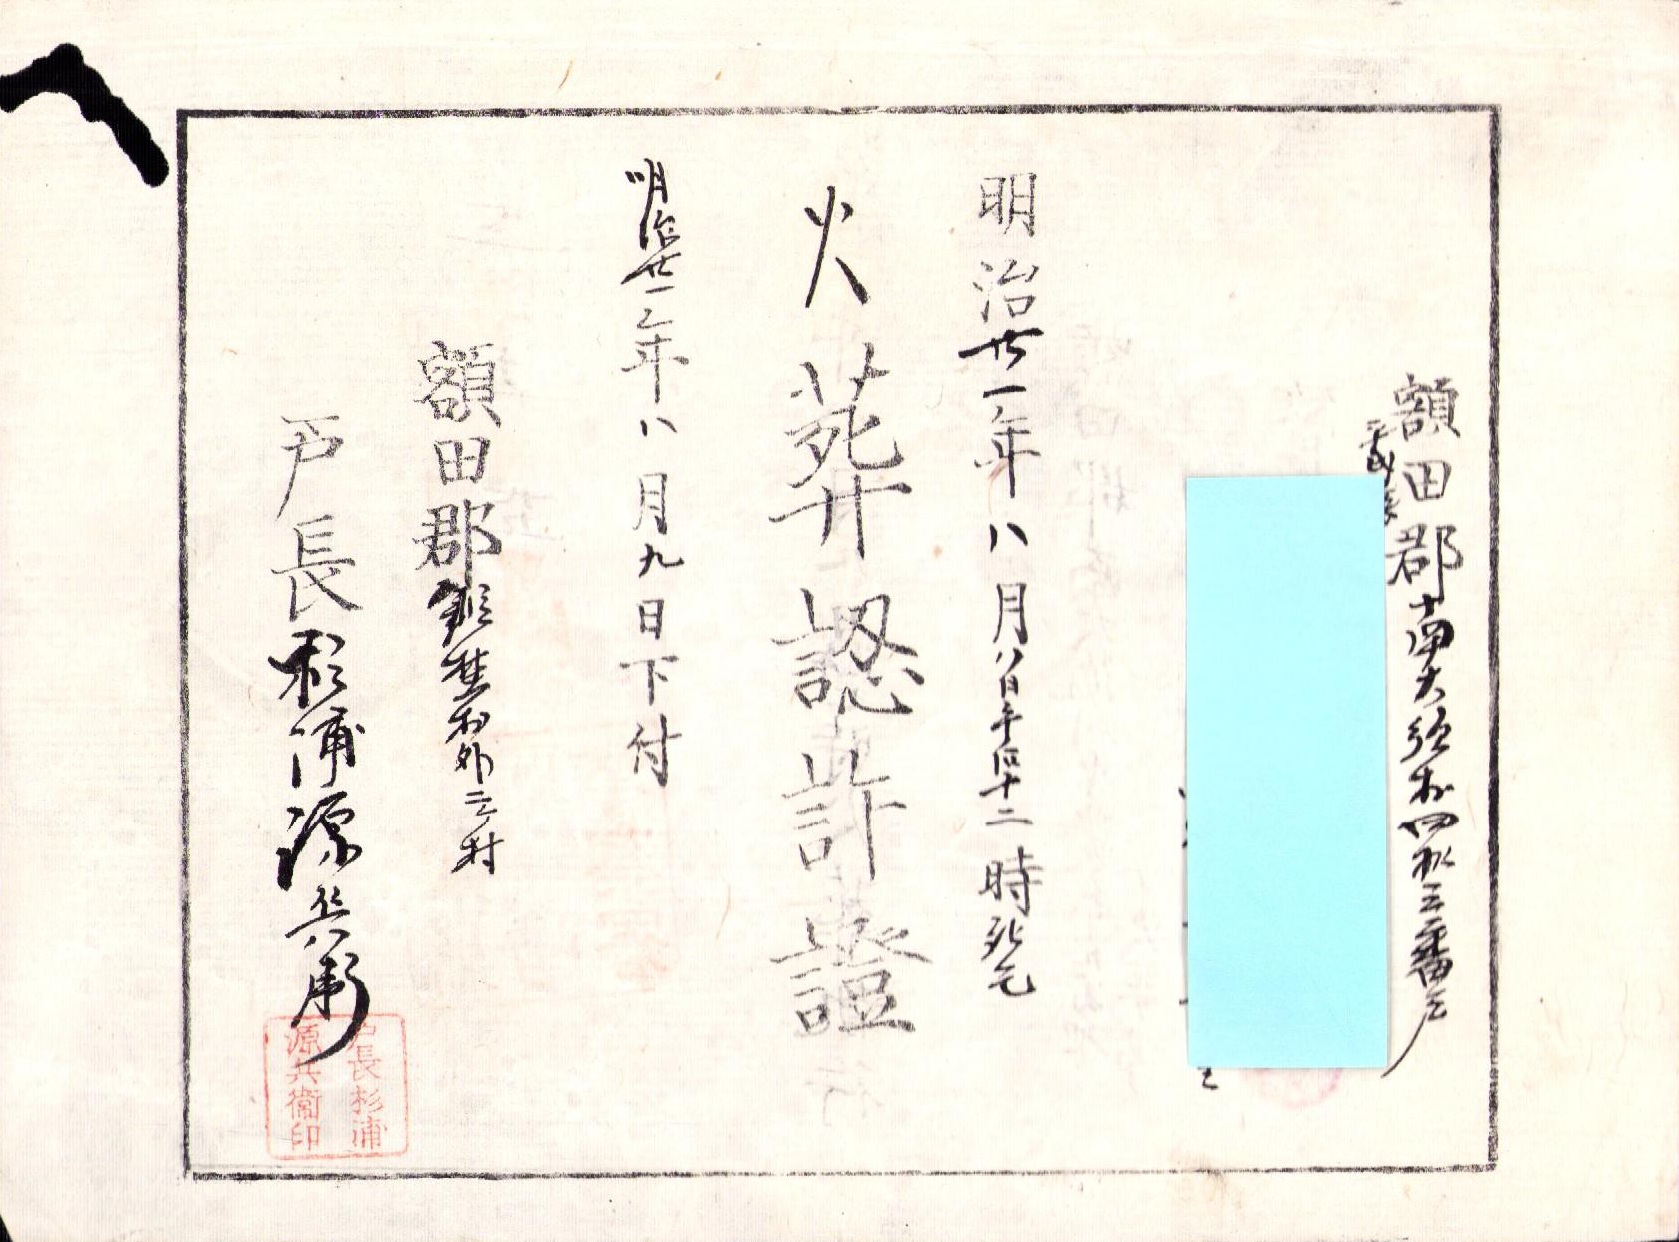 額田郡南大須村四拾三番戸
明治廿一年八月八日午后十二時死亡
火葬認許證
明治廿一年八月九日下付
額田郡樫山村外二ヶ村
戸長杉浦源兵衛
戸長杉浦
源兵衛印